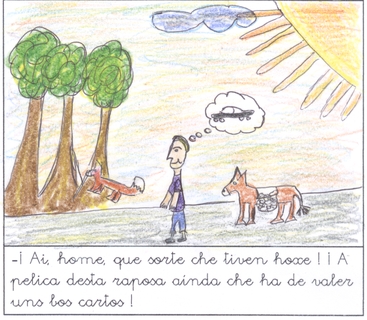 -¡ Ai, home, que sorte che tiven hoxe ! ¡ A
pelica desta raposa ainda che ha de valer
uns bos cartos !